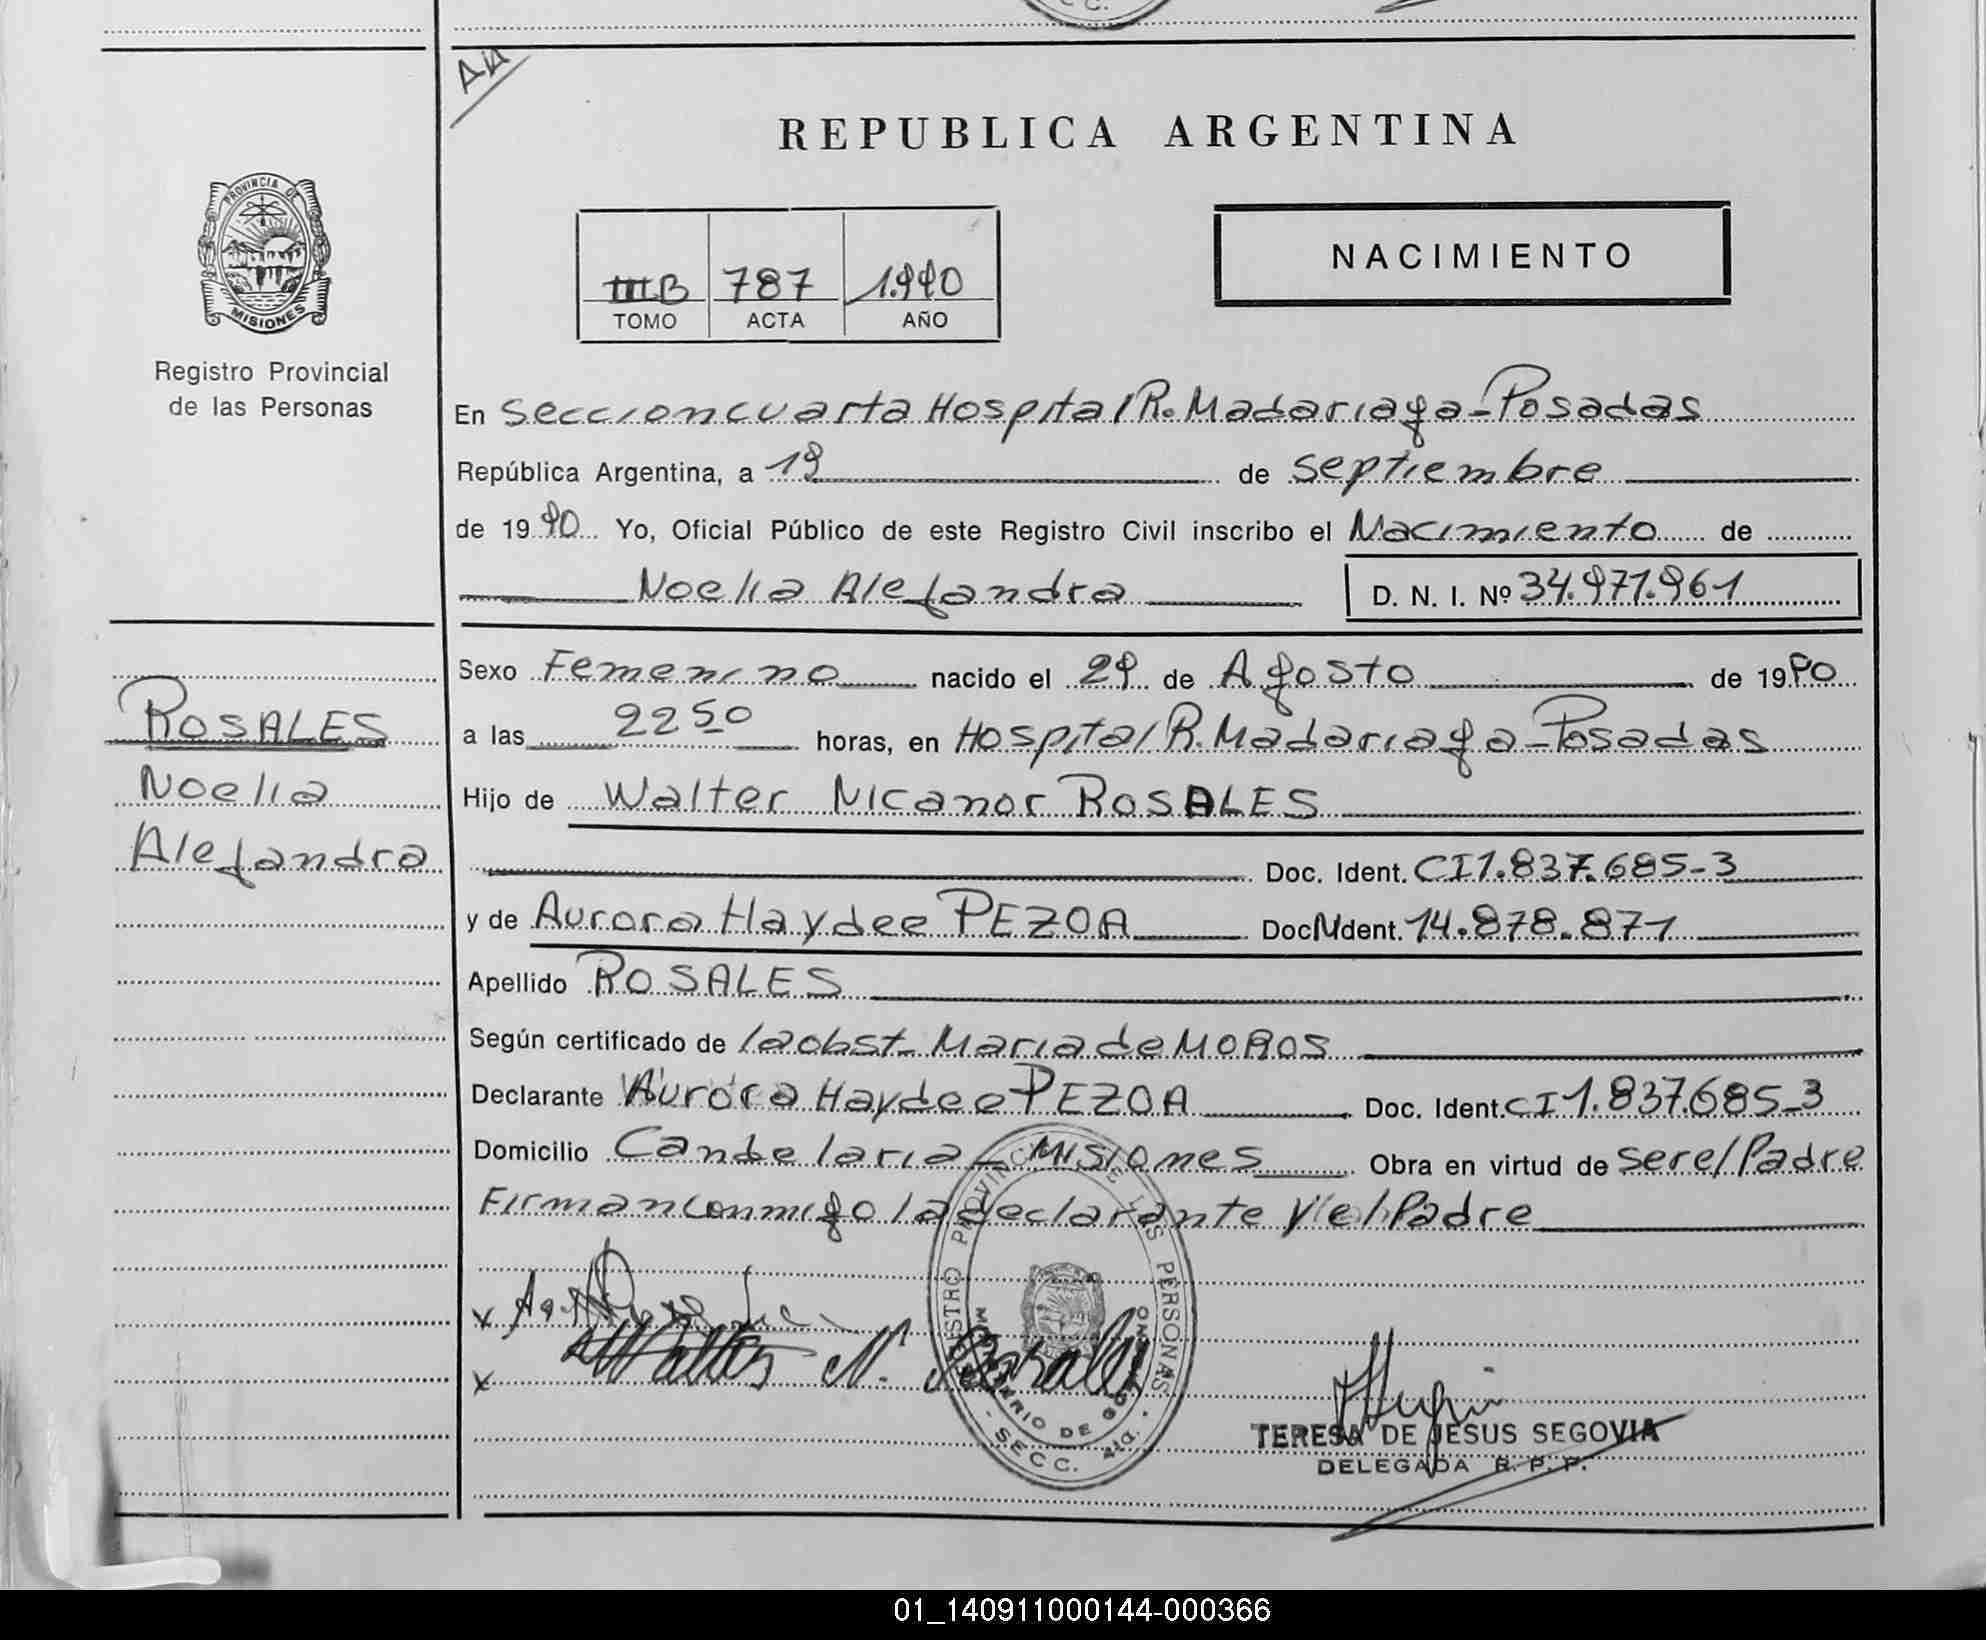 REPUBLICA ARGENTINA
PROVINCIA DE
MISIONES
Registro Provincial
de las Personas
NACIMIENTO
IIIB 787 1.990
TOMO ACTA AÑO
En Seccion cuarta Hospital R. Madariaga - Posadas
República Argentina, a 19 de septiembre
de 1990 Yo, Oficial Público de este Registro Civil inscribo el Nacimiento de
Noelia Alejandra D. N. I. Nº 34.971.961
ROSALES
Noelia
Alejandra
Sexo Femenino nacido el 29 de Agosto de 1990
a las 22 50 horas, en Hospital R. Madariaga - Posadas
Hijo de Walter Nicanor ROSALES
Doc. Ident. CI 1.837.685-3
y de Aurora Haydee PEZOA Doc. Ident. 14.878.871
Apellido ROSALES
Según certificado de la obst. Maria de MOROS
Declarante Aurora Haydee PEZOA Doc. Ident. CI 1.837.685-3
Domicilio Candelaria - Misiones Obra en virtud de ser el Padre
Firman conmigo la declarante y el Padre
x
x Walter N. Rosales
REGISTRO PROVINCIAL DE LAS PERSONAS
MINISTERIO DE GOBIERNO
- SECC. 4ta. -
TERESA DE JESUS SEGOVIA
DELEGADA R. P. P.
01_140911000144-000366